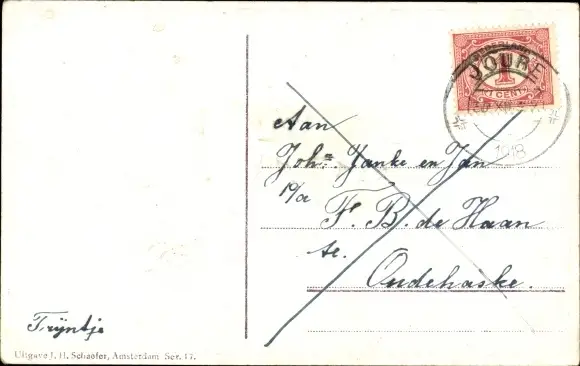 JOURE
1
CENT
XII
1918
Aan
Joh.m Janke en Jan
p/a
F. B. de Haan
te.
Oudehaske.
Trÿntje
Uitgave J. H. Schaefer, Amsterdam Ser. 17.